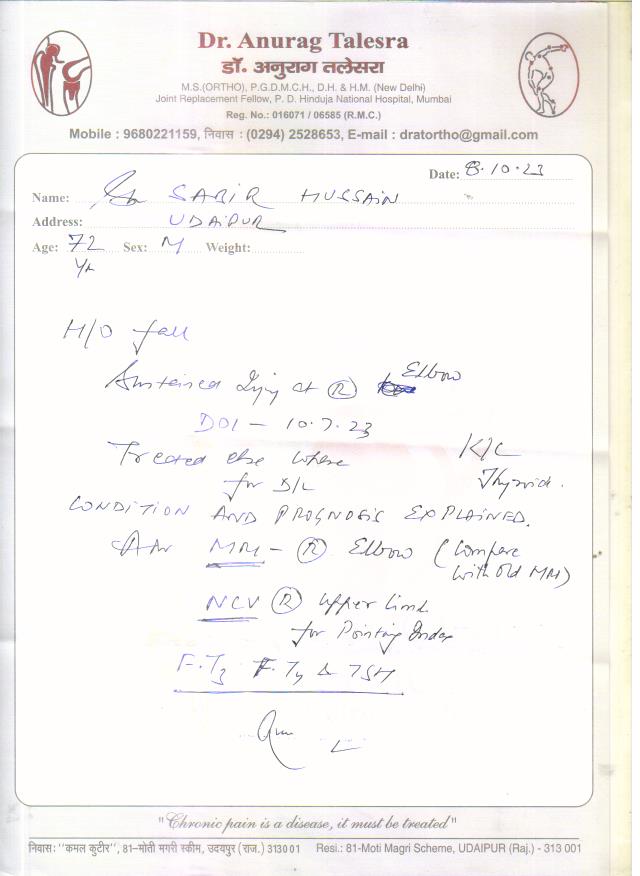 Dr. Anurag Talesra
डॉ. अनुराग तलेसरा
M.S.(ORTHO), P.G.D.M.C.H., D.H. & H.M. (New Delhi)
Joint Replacement Fellow, P. D. Hinduja National Hospital, Mumbai
Reg. No.: 016071 / 06585 (R.M.C.)
Mobile : 9680221159, निवास : (0294) 2528653, E-mail : dratortho@gmail.com
Date: 8.10.23
Name: SABIR HUSSAIN
Address: UDAIPUR
Age: 72 Sex: M Weight:
Yr
H/O fall
Sustained Injury at R Elbow
DOI - 10.7.23
Treated else where K/C
for D/L Thyroid.
CONDITION AND PROGNOSIS EXPLAINED.
Adv MRI - R Elbow (Compare
with old MRI)
NCV R upper limb
for Pointing Index
F.T3 F.T4 & TSH
"Chronic pain is a disease, it must be treated"
निवास: "कमल कुटीर", 81-मोती मगरी स्कीम, उदयपुर (राज.) 313001 Resi.: 81-Moti Magri Scheme, UDAIPUR (Raj.) - 313 001